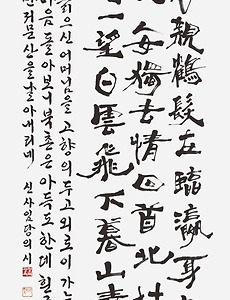 親鶴髮在臨瀛身
安獨去情回首北村
一望白雲飛下暮山青
늙으신 어머님을 고향의 두고 외로이 가는
마음 돌아보니 북촌은 아득도 한데 흰
저문 산을 날아 내리네
신사임당의 시